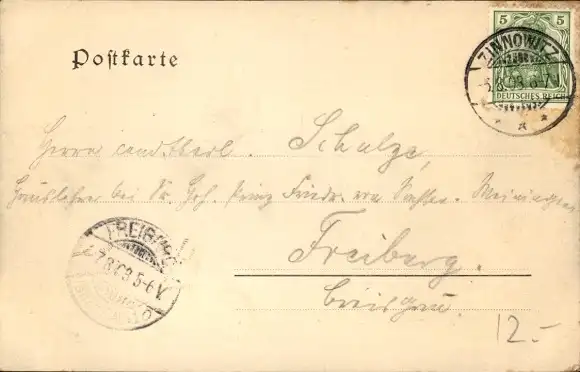 Postkarte
5
DEUTSCHES REICH
ZINNOWITZ
Herrn cand. theol. Schulze,
Hauslehrer bei Sr. Hoh. Prinz Friedr. von Sachsen-Meiningen
Freiburg.
Breisgau.
FREIBURG
7.8.03.5-6V.
12.-